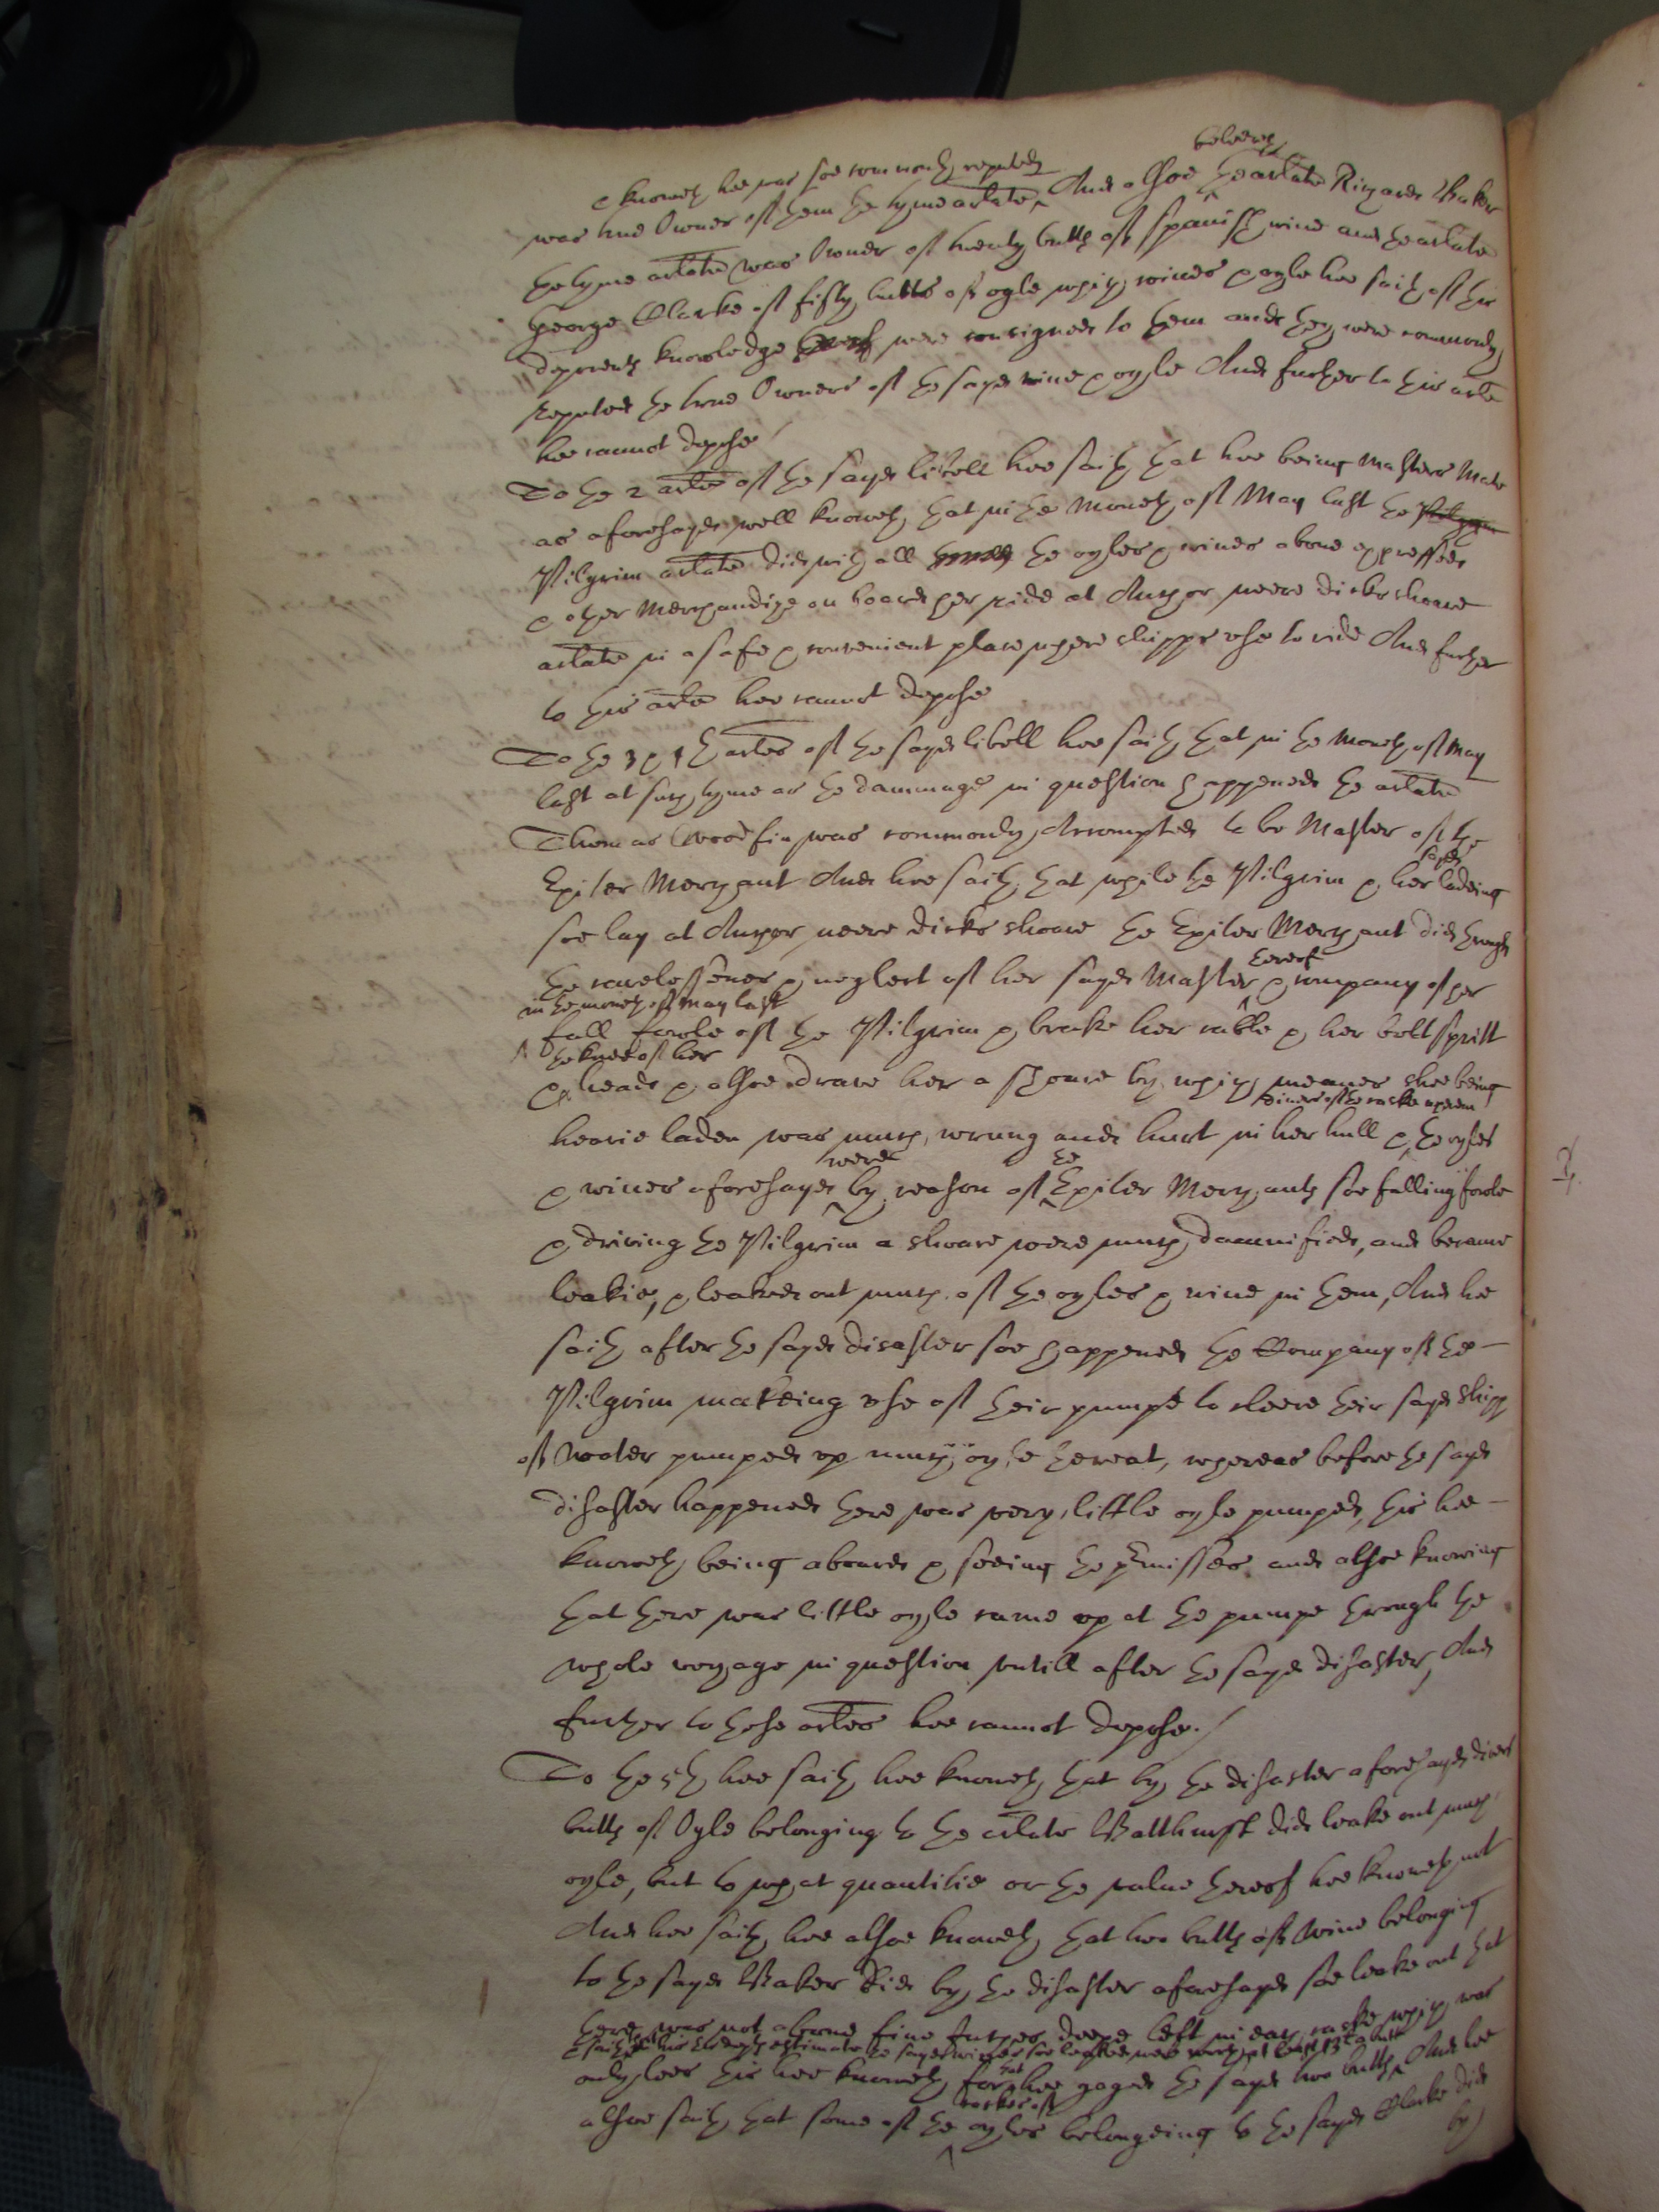 beleeveth
& knoweth hee was soe commonly reputed
was true Owner of them the tyme arlate, And alsoe the arlate Richard Baker
the tyme arlate was Owner of twenty butts of Spanish wine and the arlate
George Clarke of fifty butts of oyle which wines & oyle hee saith of his
deponents knowledge were consigned to them and they were commonly
reputed the true Owners of the sayd wine & oyle And further to this arlе
hee cannot depose
To the 2 arle of the sayd libell hee saith that hee being Masters Mate
as aforesayd well knoweth that in the Moneth of May last the Pilgrim
Pilgrim arlate did with all the oyles & wines above expressed
& other Merchandize on board her ride at Anchor neere dicks shoare
arlate in a safe & convenient place where shipps use to ride And further
to this arle hee cannot depose
To the 3 & 4th arles of the sayd libell hee saith that in the Moneth of May
last at such tyme as the dammage in question happened the arlate
Thomas Woodfin was commonly Accompted to be Master of the
Exiter Merchant And hee saith that while the Pilgrim & her sayd ladeing
soe lay at Anchor neere dicks shoare the Exiter Merchant did through
the carelessenes & neglect of her sayd Master thereof & company of her
in the moneth of May last
fall fowle of the Pilgrim & brake her cable & her boltspritt
the knee of her
& heade & alsoe drave her a shoare by which meanes shee being
divers of the caske wherein
heavie laden was much wrung and hurt in her hull & the oyles
were the
& wines aforesayd by reason of Exiter Merchants soe falling fowle
& driving the Pilgrim a shoare were much damnified, and became
leakie, & leaked out much of the oyles & wine in them, And hee
saith after the sayd disaster soe happened the Company of the
Pilgrim makeing use of their pumpe to cleere their sayd shipp
of water pumped up much oyle thereat, whereas before the sayd
disaster happened there was very little oyle pumped, this hee
knoweth being aboard & seeing the premisses and alsoe knowing
that there was little oyle came up at the pumpe through the
whole voyage in question untill after the sayd disaster, And
further to these arles hee cannot depose./
To the 5th hee saith hee knoweth that by the disaster aforesayd divers
butts of Oyle belonging to the arlate Batthurst did leake out much
oyle, but to what quantitie or the value thereof hee knoweth not
And hee saith hee alsoe knoweth that two butts of wine belonging
to the sayd Baker did by the disaster aforesayd soe leake out that
there was not above five Inches deepe left in each caske which was
& saith in his estimate the sayd wines soe leaked was worth at least a butt
only lees this hee knoweth for that hee gaged the sayd two butts And hee
caskes of
alsoe saith that some of the oyles belongeing to the sayd Clarke did
by